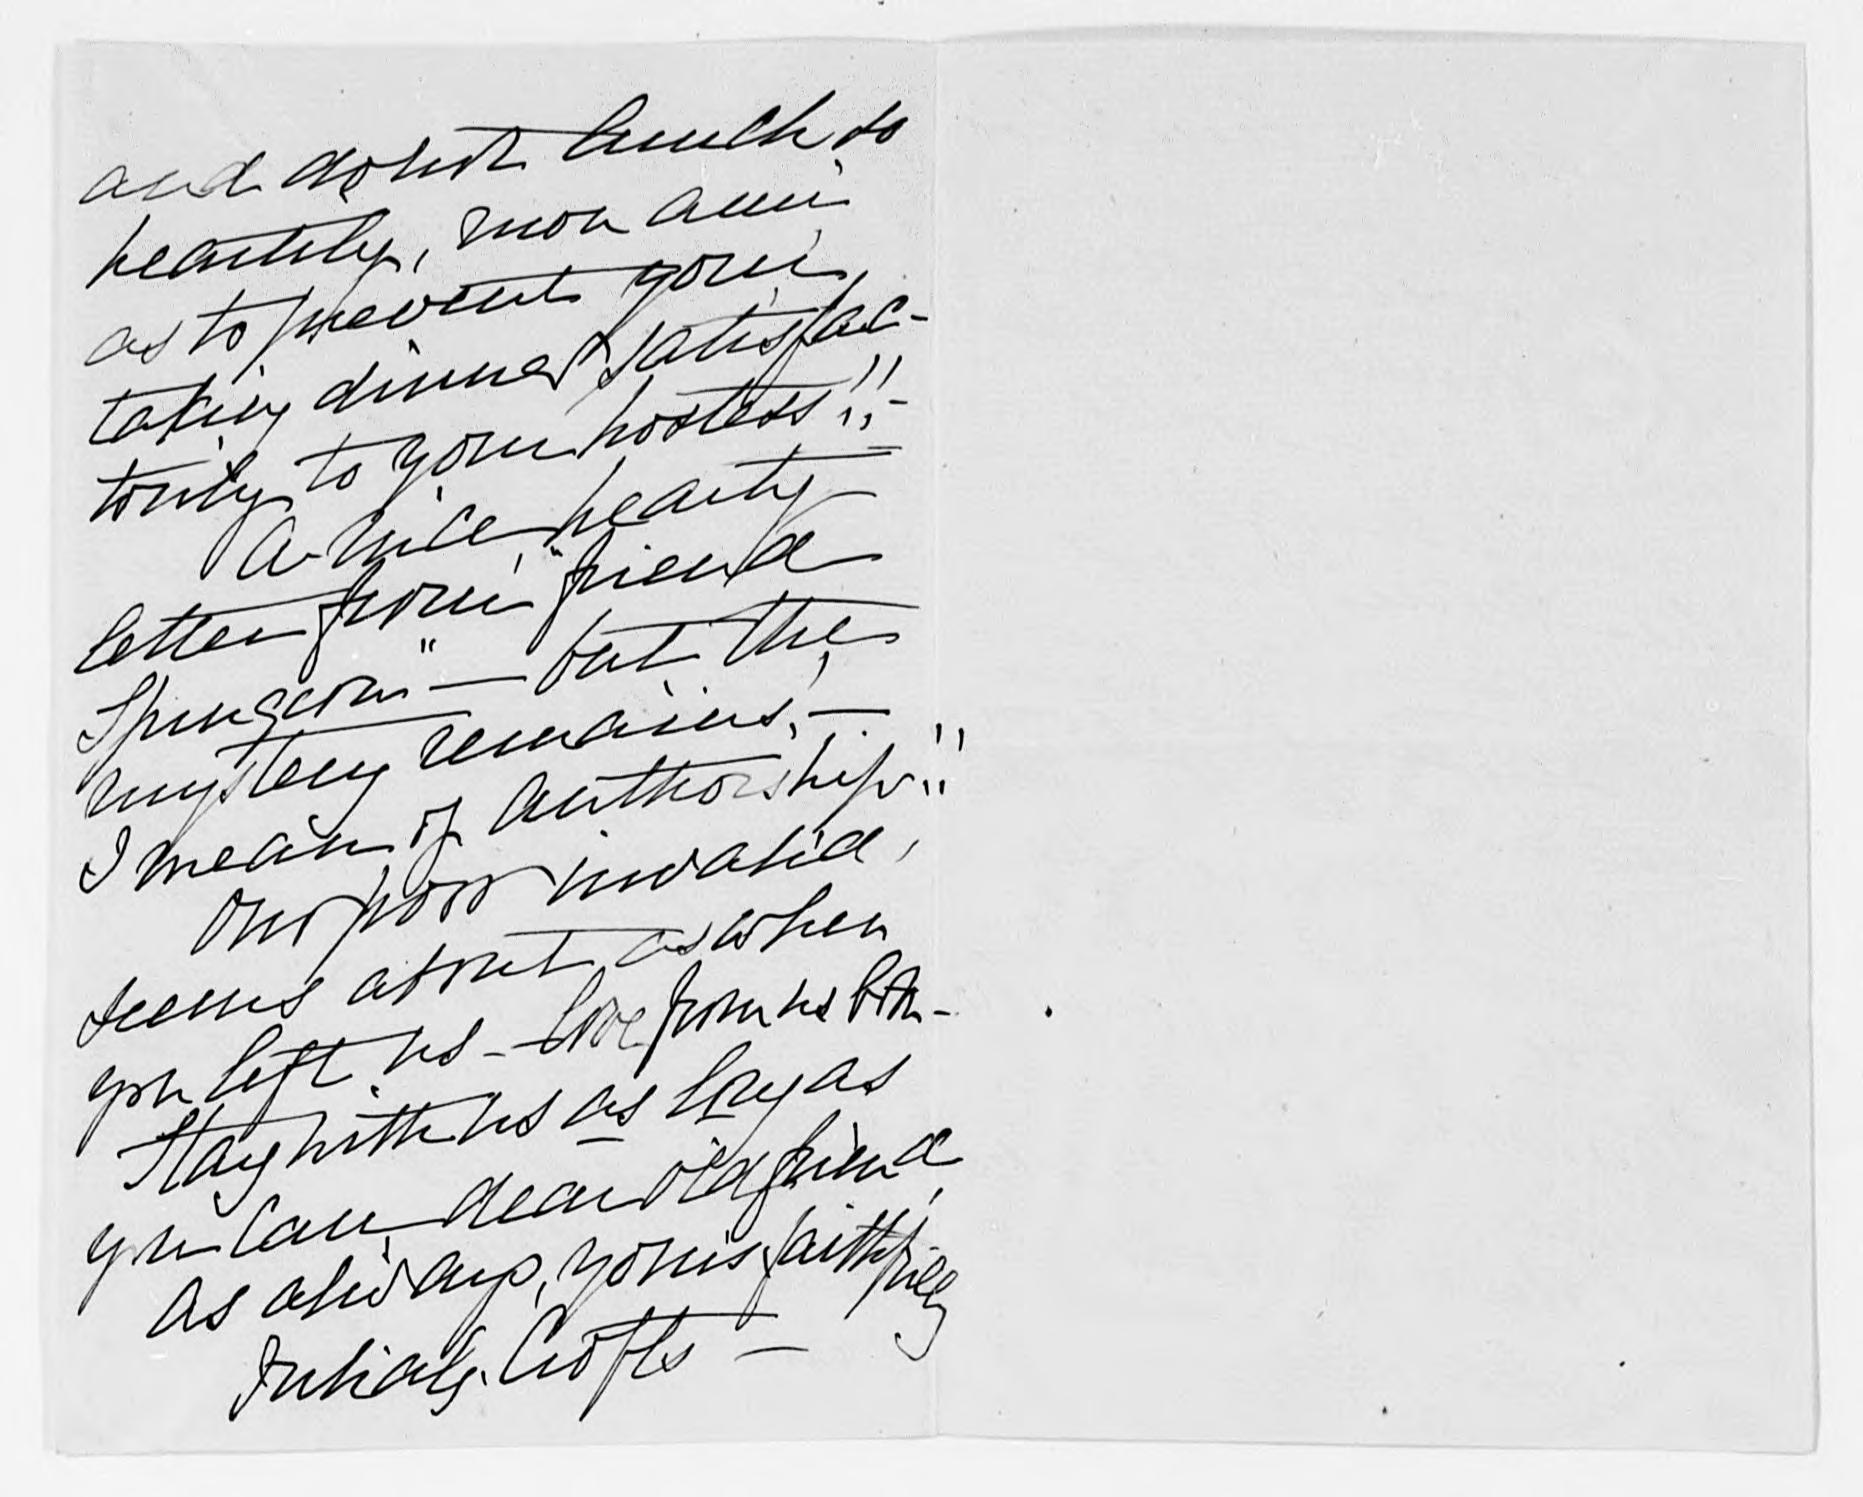 and don't lunch so
heartily, mon ami
as to prevent your
taking dinner satisfac-
torily to your hostess!!-
A nice hearty
letter from "friend
Spurgeon" — but the
mystery remains, —
I mean of authorship!!
Our poor invalid,
seems about as when
you left us - love from us both -
Stay with us as long as
you can, dear old friend,
As always, yours faithfully
Julia G. Crofts —